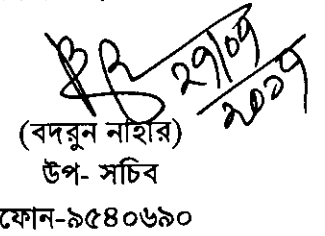 ২৭/০৭
২০০৭
(বদরুন নাহার)
উপ- সচিব
ফোন-৯৫৪০৬৯০